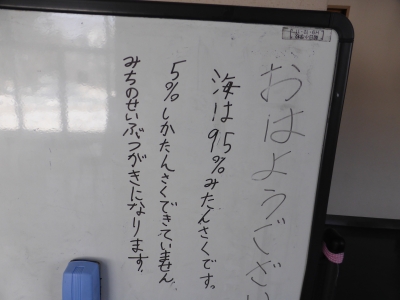 おはようござい
海は95%みたんさくです。
5%しかたんさくできていません。
みちのせいぶつがきになります。